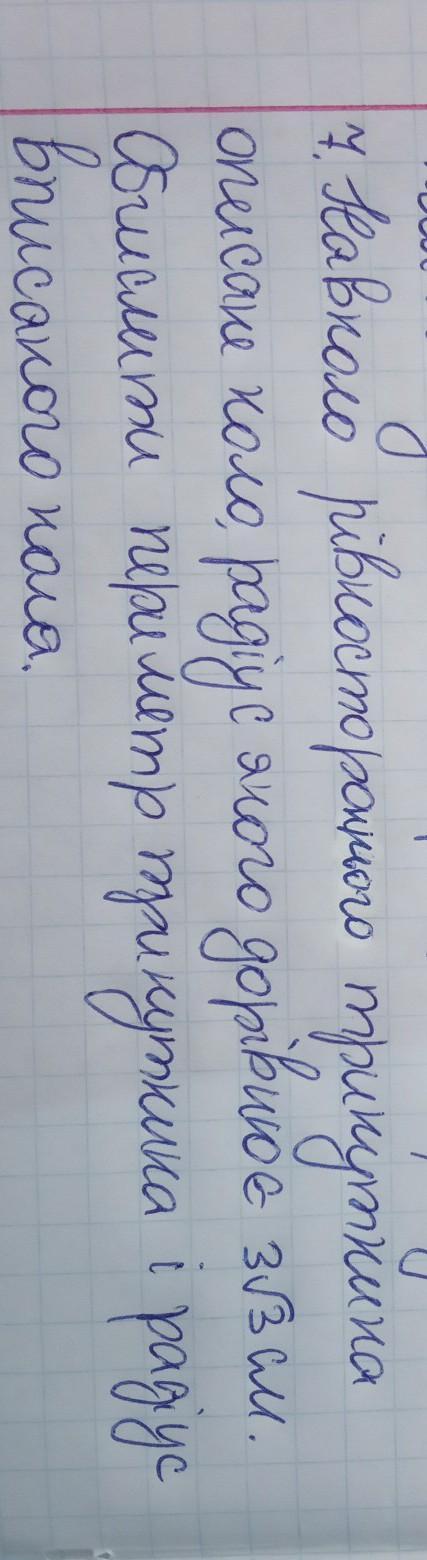 7. Навколо рівностороннього трикутника
описане коло, радіус якого дорівнює 3√3 см.
Обчислити периметр трикутника і радіус
вписаного кола.